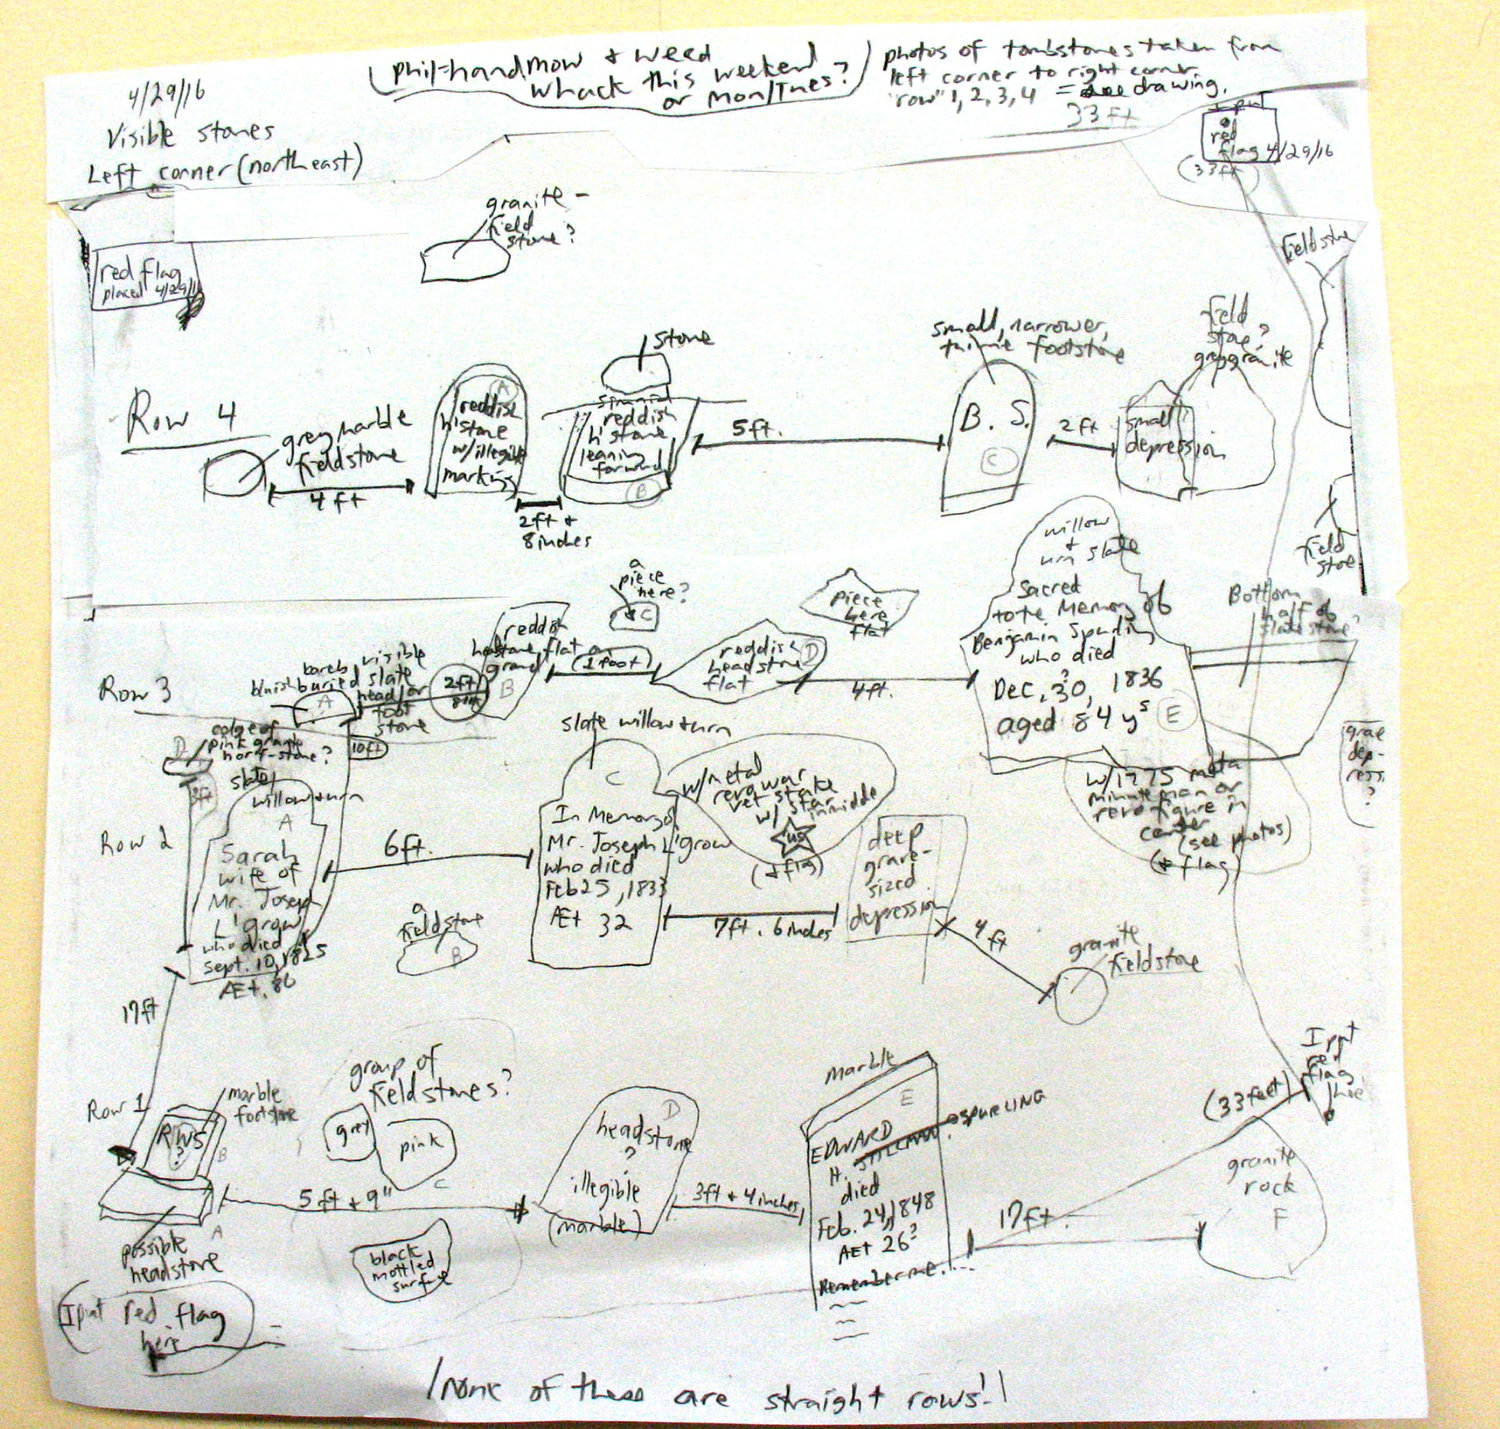 4/29/16
Visible stones
Left corner (northeast)
(phil=handmow & weed
whack this weekend
or mon/Tues?)
photos of tombstones taken from
left corner to right corner
"row" 1, 2, 3, 4 = drawing.
33 ft
I put
a
red
flag 4/29/16
(33ft)
granite-
field
stone?
red flag
placed 4/29/16
fieldstone
Row 4
grey marble
fieldstone
4 ft
A
reddish
h'stone
w/illegible
markings
2ft &
8 inches
stone
similar
reddish
h'stone
leaning
forward
B
5ft.
small, narrower,
footstone
B. S.
C
2ft
field
stone?
grey granite
small
depression
field
stone
Row 3
barely visible
bluish buried slate
head/or
foot
stone
A
2ft
8in
10ft
reddish
headstone, flat on
ground
B
a
piece
here?
C
1 foot
reddish
headstone
flat
D
piece
here
flat
4ft.
willow
+
urn slate
Sacred
to the Memory of
Benjamin Spurling
who died
Dec, 30, 1836
aged 84 ys
E
Bottom
half of
slate stone?
w/1775 metal
minuteman or
revo figure in
center
(see photos)
(& flag)
grave
dep-
ress.
?
Row 2
D
edge of
pink granite
horf-stone?
3ft
slate
willow & urn
A
Sarah
wife of
Mr. Joseph
L'grow
who died
Sept. 10, 1825
AEt. 80
6ft.
a
fieldstone
B
slate willow & urn
C
In Memory of
Mr. Joseph L'grow
who died
Feb 25, 1833
AEt 32
w/metal
revo war
vet stake
w/ star
in midde
US
(& flag)
7ft. 6 inches
deep
grave-
sized
depression
4 ft
granite
fieldstone
17ft
Row 1
marble
footstone
RWS
?
B
A
possible
headstone
I put red flag
here
group of
fieldstones?
grey
pink
C
5ft & 9"
black
mottled
surface
D
headstone
?
illegible
(marble)
3ft & 4 inches
marble
E
EDWARD
H. SPURLING
died
Feb. 24, 1848
AEt 26?
Remember me....
17ft.
(33 feet)
I put
red
flag
here
granite
rock
F
/none of these are straight rows!/